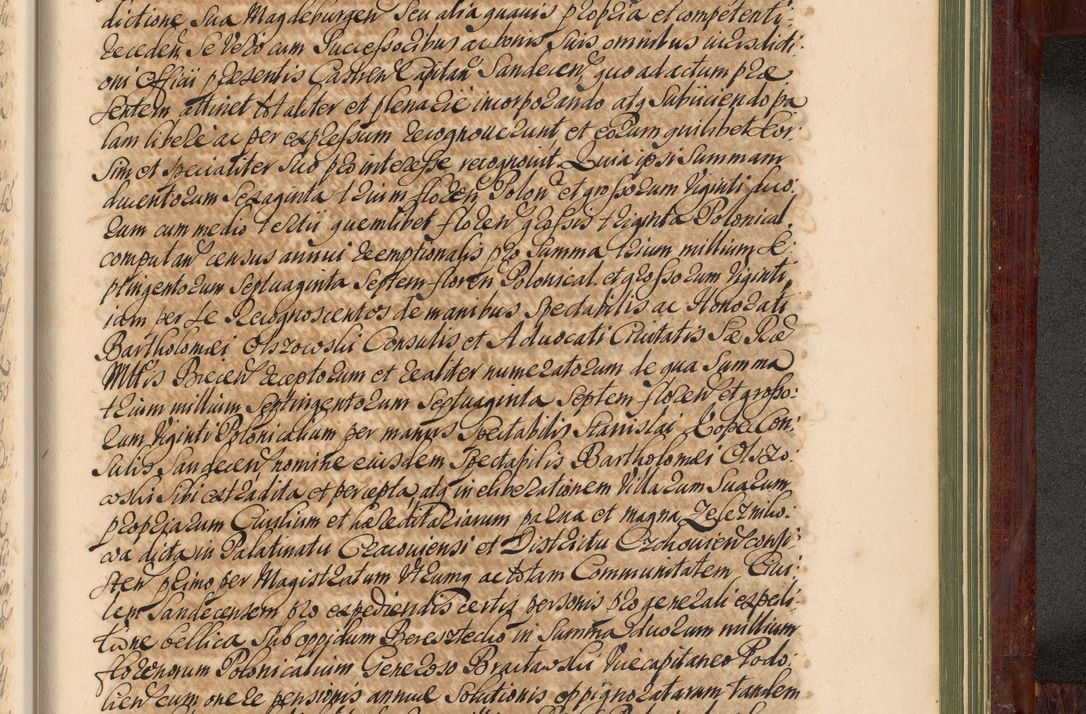 dictione Sua Magdeburgen Seu alia quavis propria et competenti
receden Se vero cum Successoribus ac bonis Suis omnibus iurisdicti
oni Officii praesentis Castren Capitan Sandecen quo ad actum prae
sentem attinet et aliter et plenarie incorporando atq Subiiciendo pa
lam libere ac per expressum recognoverunt et eorum quilibet
Sim et Specialiter Suo pro interesse recognovit Quia ipsi Summam
ducentorum Sexaginta trium floren Polon et grossorum Viginti duo
rum cum medio tertii quemlibet floren grossis triginta Polonical
computan census annui reemptionalis pro Summa trium millium Se
ptingentorum Septuaginta Septem floren Polonical et grossorum Viginti
iam per Se Recognoscentes de manibus Spectabilis ac Honorati
Bartholomaei Olszowski Consulis et Advocati Civitatis Sae Rae
Mttis Biecen receptorum et realiter numeratorum de qua Summa
trium millium Septingentorum Septuaginta Septem floren et grosso
rum Viginti Polonicalium per manus Spectabilis Stanislai Con
Sulis Sandecen nomine eiusdem Spectabilis Bartholomaei Olszo
woski Sibi est tradita et percepta atq in eliberationem Villarum Suarum
propriarum Civilium et haereditariarum parva et magna
wa dicta in Palatinatu Cracoviensi et Districtu Czchovien consi
sten primo per Magistratum Utrumq ac totam Communitatem Civi
len Sandecensem pro expediendis certis personis pro generali expedi
tione bellica Sub oppidum Beresztecko in Summa duorum millium
florenorum Polonicalium Generoso Bracławski Vicecapitaneo Podo
lien cum onere pensionis annuae Solutionis oppignoratarum tandem